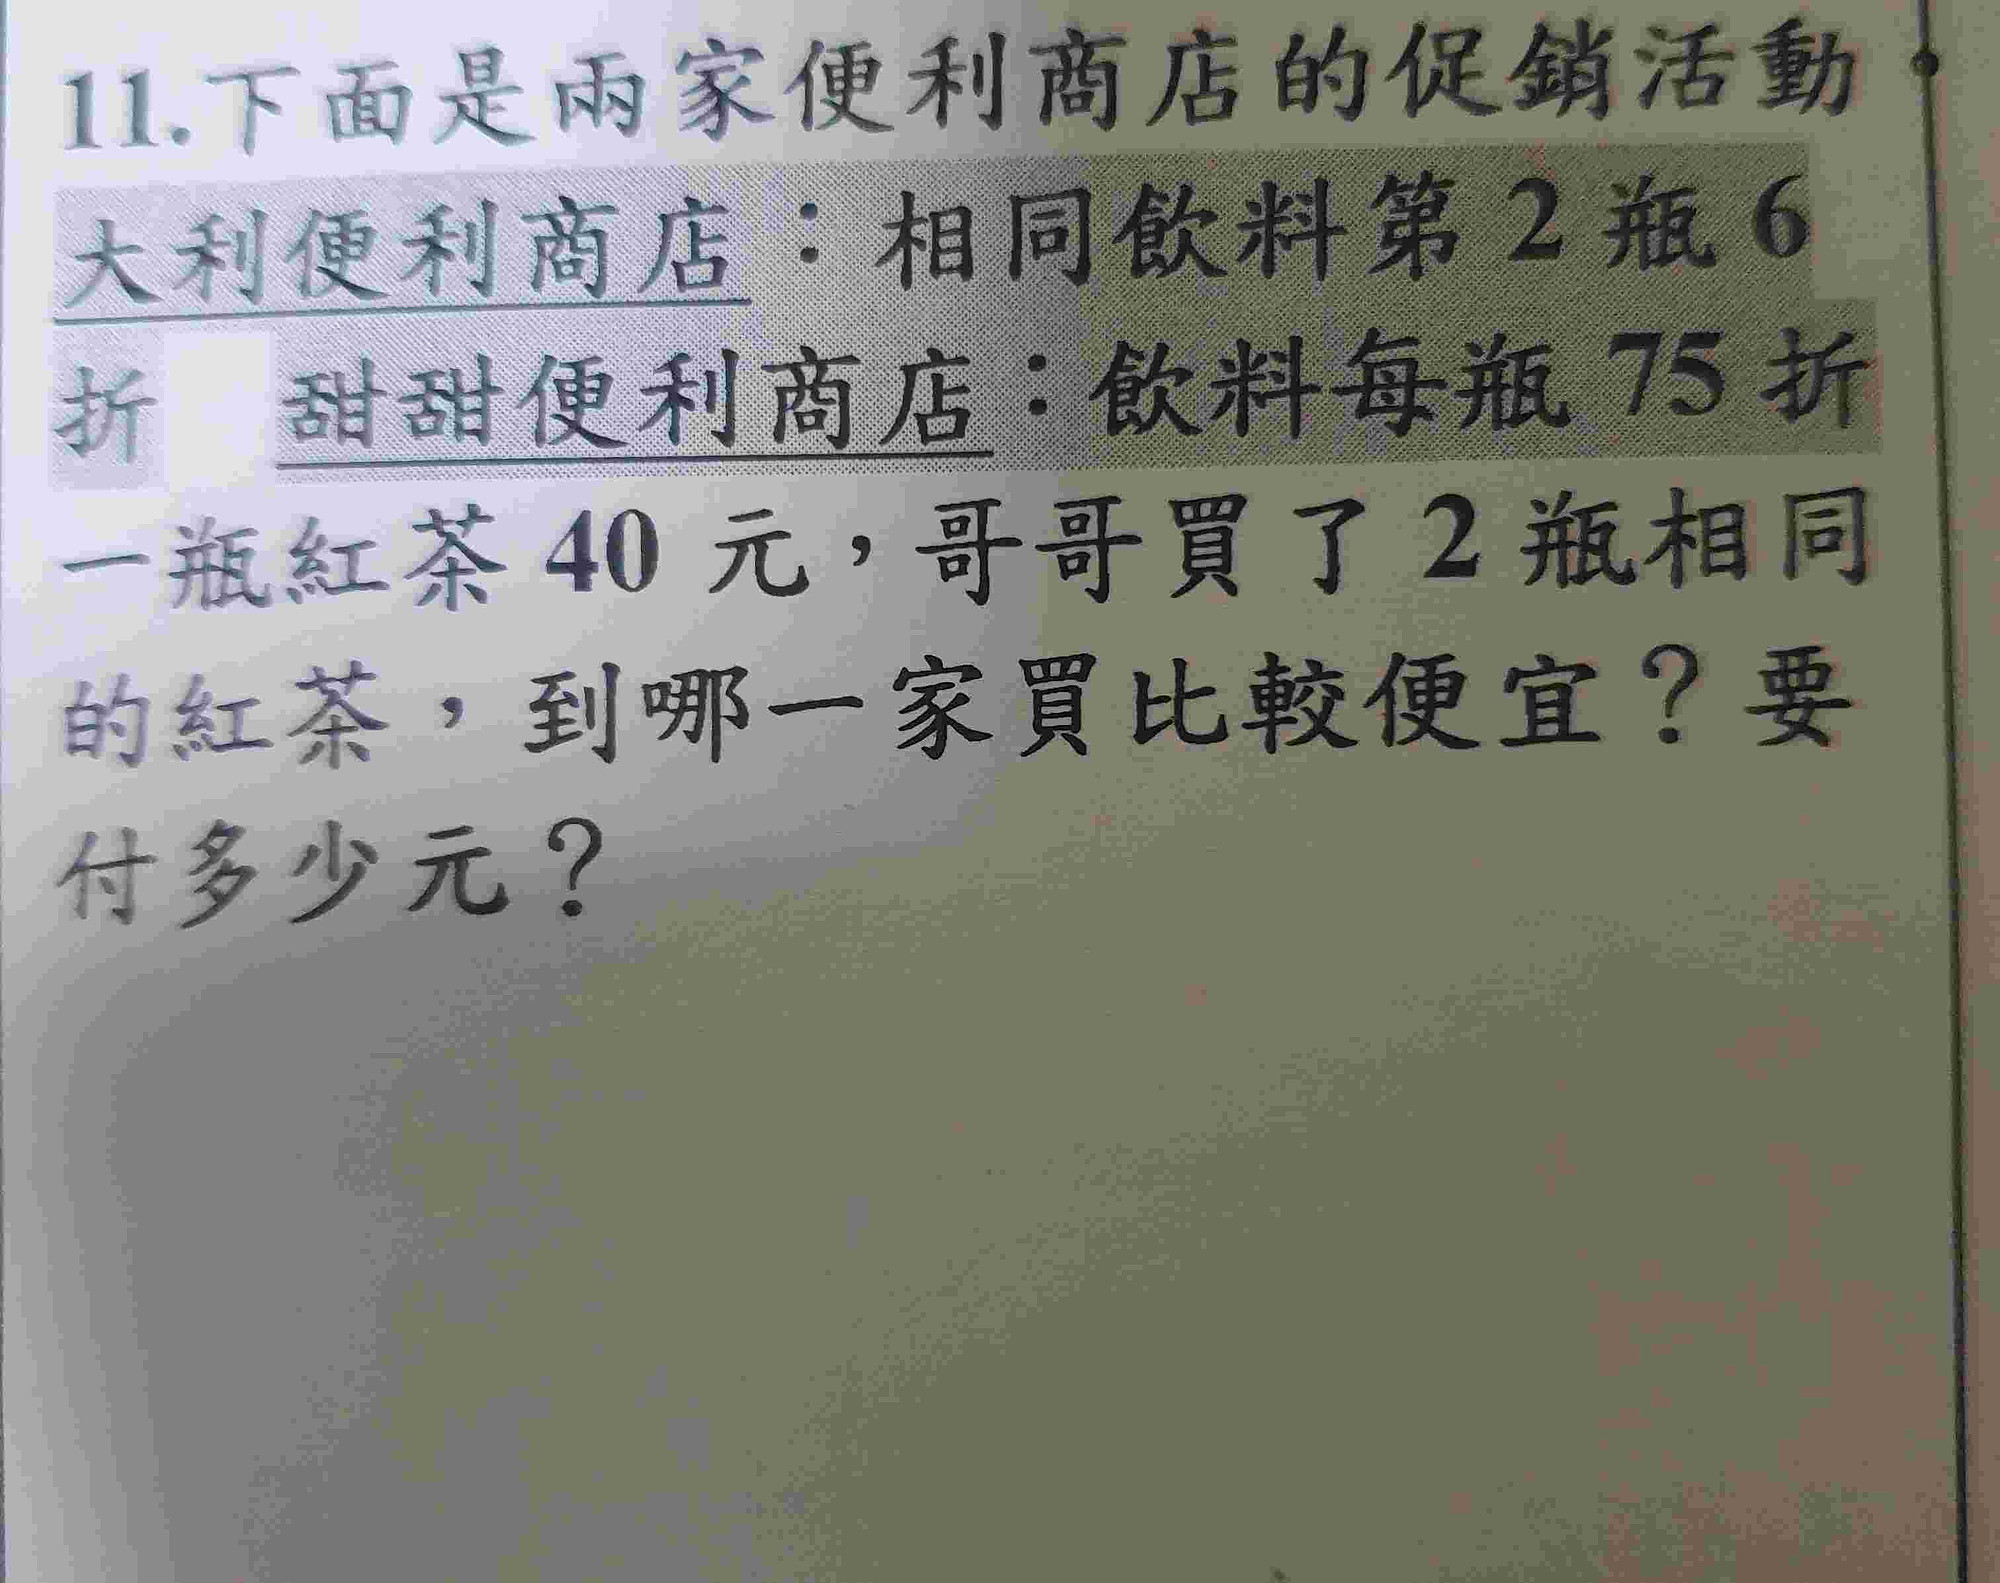 11.下面是兩家便利商店的促銷活動
大利便利商店：相同飲料第 2 瓶 6
折　甜甜便利商店：飲料每瓶 75 折
一瓶紅茶 40 元，哥哥買了 2 瓶相同
的紅茶，到哪一家買比較便宜？要
付多少元？